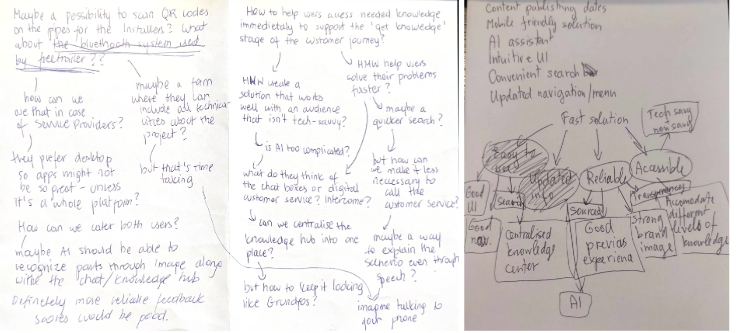 Maybe a possibility to scan QR codes
on the pipes for the installers? What
about the bluetooth system used
by
??
how can we
use that in case
of Service Providers?
maybe a form
where they can
include all technical
about the
project?
they prefer desktop
so apps might not
be so great - unless
it's a whole platform?
but that's time
taking
How can we cater both users?
maybe AI should be able to
recognize parts through image along
with the chat/knowledge hub
Definitely more reliable feedback
would be good.
How to help users assess needed knowledge
immediately to support the 'get knowledge'
stage of the customer journey?
HMW create a
solution that works
well with an audience
that isn't tech-savvy?
HMW help users
solve their problems
faster?
maybe a
quicker search?
is AI too complicated?
what do they think of
the chat boxes or digital
customer service? Intercome?
but how can
we make it less
necessary to
call the
customer service?
can we centralise the
knowledge hub into one
place?
maybe a way
to explain the
scenario even through
speech?
but how to keep it looking
like Grundfos?
imagine talking to
your phone
Content publishing dates
Mobile friendly solution
AI assistant
Intuitive UI
Convenient search
Updated navigation/menu
Tech savy
non savy
Fast solution
Easy to
use
Updated
info
Reliable
Accessible
Good
UI
Search
Sources
Transparency
Accomodate
different
levels of
knowledge
Good
nav.
Centralised
knowledge
center
Good
previous
experience
Strong
brand
image
AI